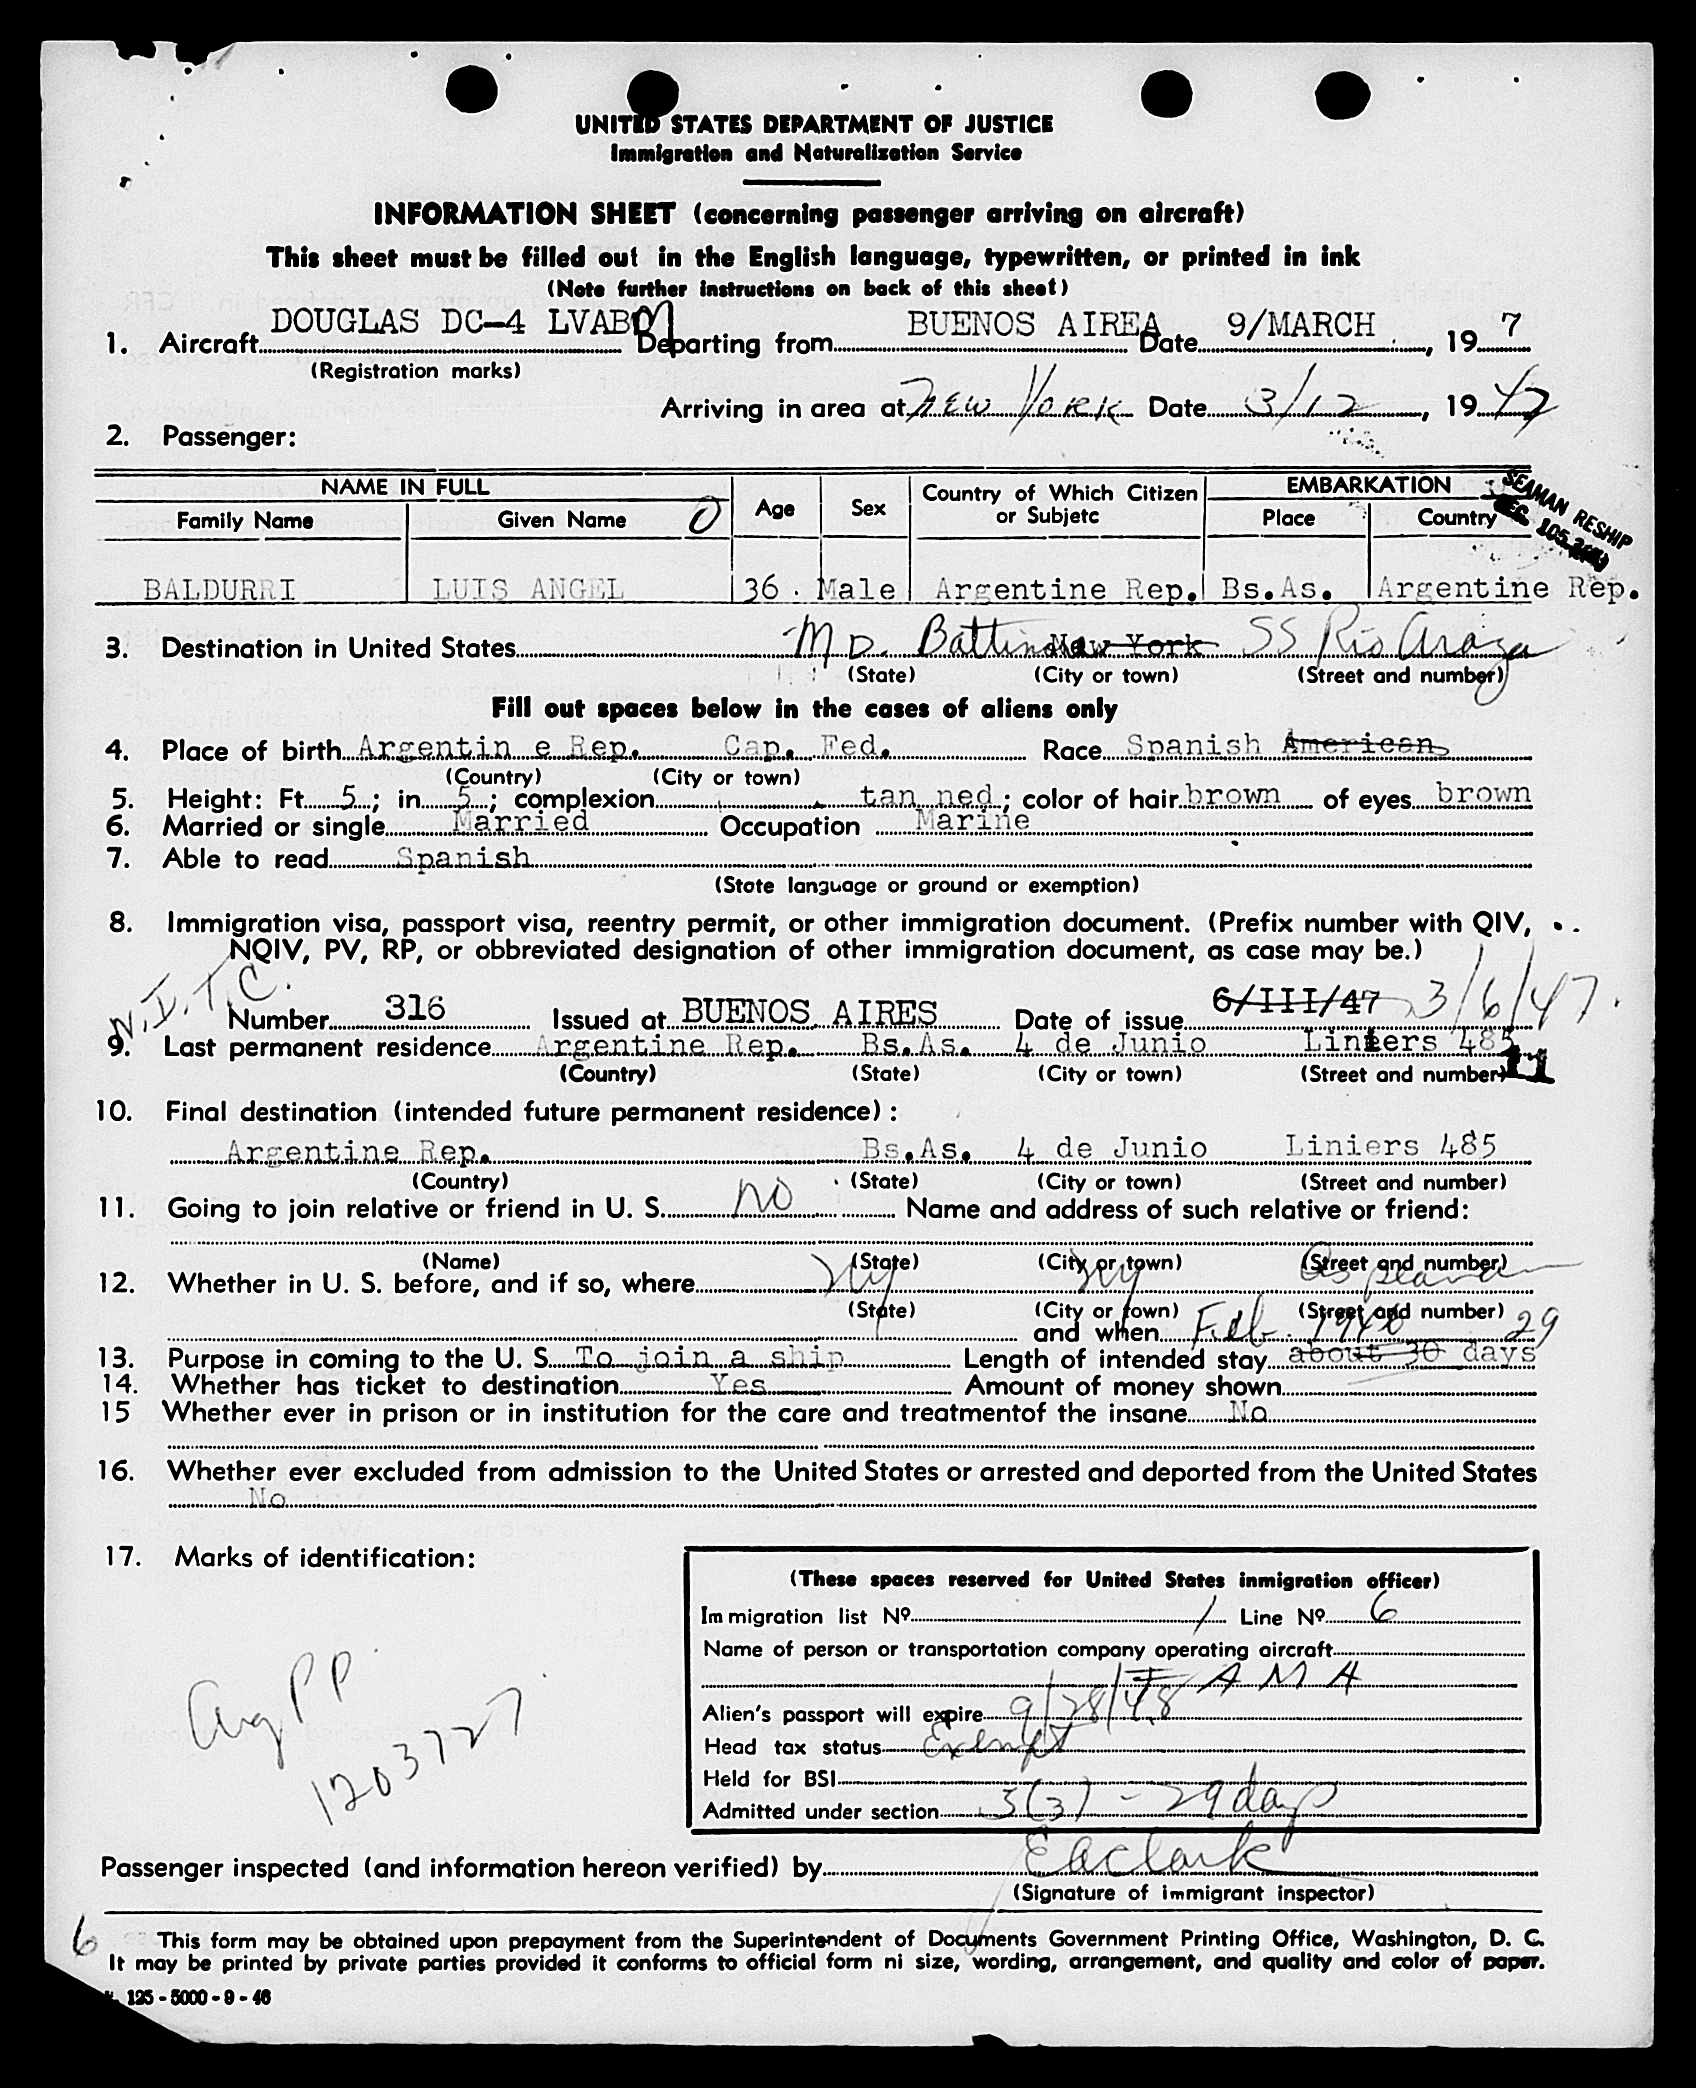 UNITED STATES DEPARTMENT OF JUSTICE
Immigration and Naturalization Service
INFORMATION SHEET (concerning passenger arriving on aircraft)
This sheet must be filled out in the English language, typewritten, or printed in ink
(Note further instructions on back of this sheet)
1. Aircraft DOUGLAS DC-4 LVABM Departing from BUENOS AIREA Date 9/MARCH, 19 7
(Registration marks)
Arriving in area at New York Date 3/12, 19 47
2. Passenger:
NAME IN FULL Age Sex Country of Which Citizen or Subjetc EMBARKATION
Family Name Given Name O Place Country
SEAMAN RESHIP
BALDURRI LUIS ANGEL 36. Male Argentine Rep. Bs.As. Argentine Rep.
3. Destination in United States MD. Baltimore New York SS Rio
(State) (City or town) (Street and number)
Fill out spaces below in the cases of aliens only
4. Place of birth Argentin e Rep. Cap. Fed. Race Spanish American
(Country) (City or town)
5. Height: Ft. 5; in. 5; complexion tan ned; color of hair brown of eyes brown
6. Married or single Married Occupation Marine
7. Able to read Spanish
(State language or ground or exemption)
8. Immigration visa, passport visa, reentry permit, or other immigration document. (Prefix number with QIV,
NQIV, PV, RP, or obbreviated designation of other immigration document, as case may be.)
N.I.T.C.
Number 316 Issued at BUENOS AIRES Date of issue 6/III/47 3/6/47.
9. Last permanent residence Argentine Rep. Bs.As. 4 de Junio Liniers 485
(Country) (State) (City or town) (Street and number)
10. Final destination (intended future permanent residence):
Argentine Rep. Bs.As. 4 de Junio Liniers 485
(Country) (State) (City or town) (Street and number)
11. Going to join relative or friend in U. S. NO Name and address of such relative or friend:
(Name) (State) (City or town) (Street and number)
12. Whether in U. S. before, and if so, where NY NY as seaman
(State) (City or town) (Street and number)
and when Feb. 1946
13. Purpose in coming to the U. S. To join a ship Length of intended stay about 30 29 days
14. Whether has ticket to destination Yes Amount of money shown
15 Whether ever in prison or in institution for the care and treatmentof the insane No
16. Whether ever excluded from admission to the United States or arrested and deported from the United States
No
17. Marks of identification:
Arg PP
1203727
(These spaces reserved for United States inmigration officer)
Immigration list Nº 1 Line Nº 6
Name of person or transportation company operating aircraft
F A M A
Alien's passport will expire 9/28/48
Head tax status Exempt
Held for BSI
Admitted under section 3(3) - 29 days
Passenger inspected (and information hereon verified) by E A Clark
(Signature of immigrant inspector)
6
This form may be obtained upon prepayment from the Superintendent of Documents Government Printing Office, Washington, D. C.
It may be printed by private parties provided it conforms to official form ni size, wording, arrangement, and quality and color of paper.
125 - 5000 - 9 - 46